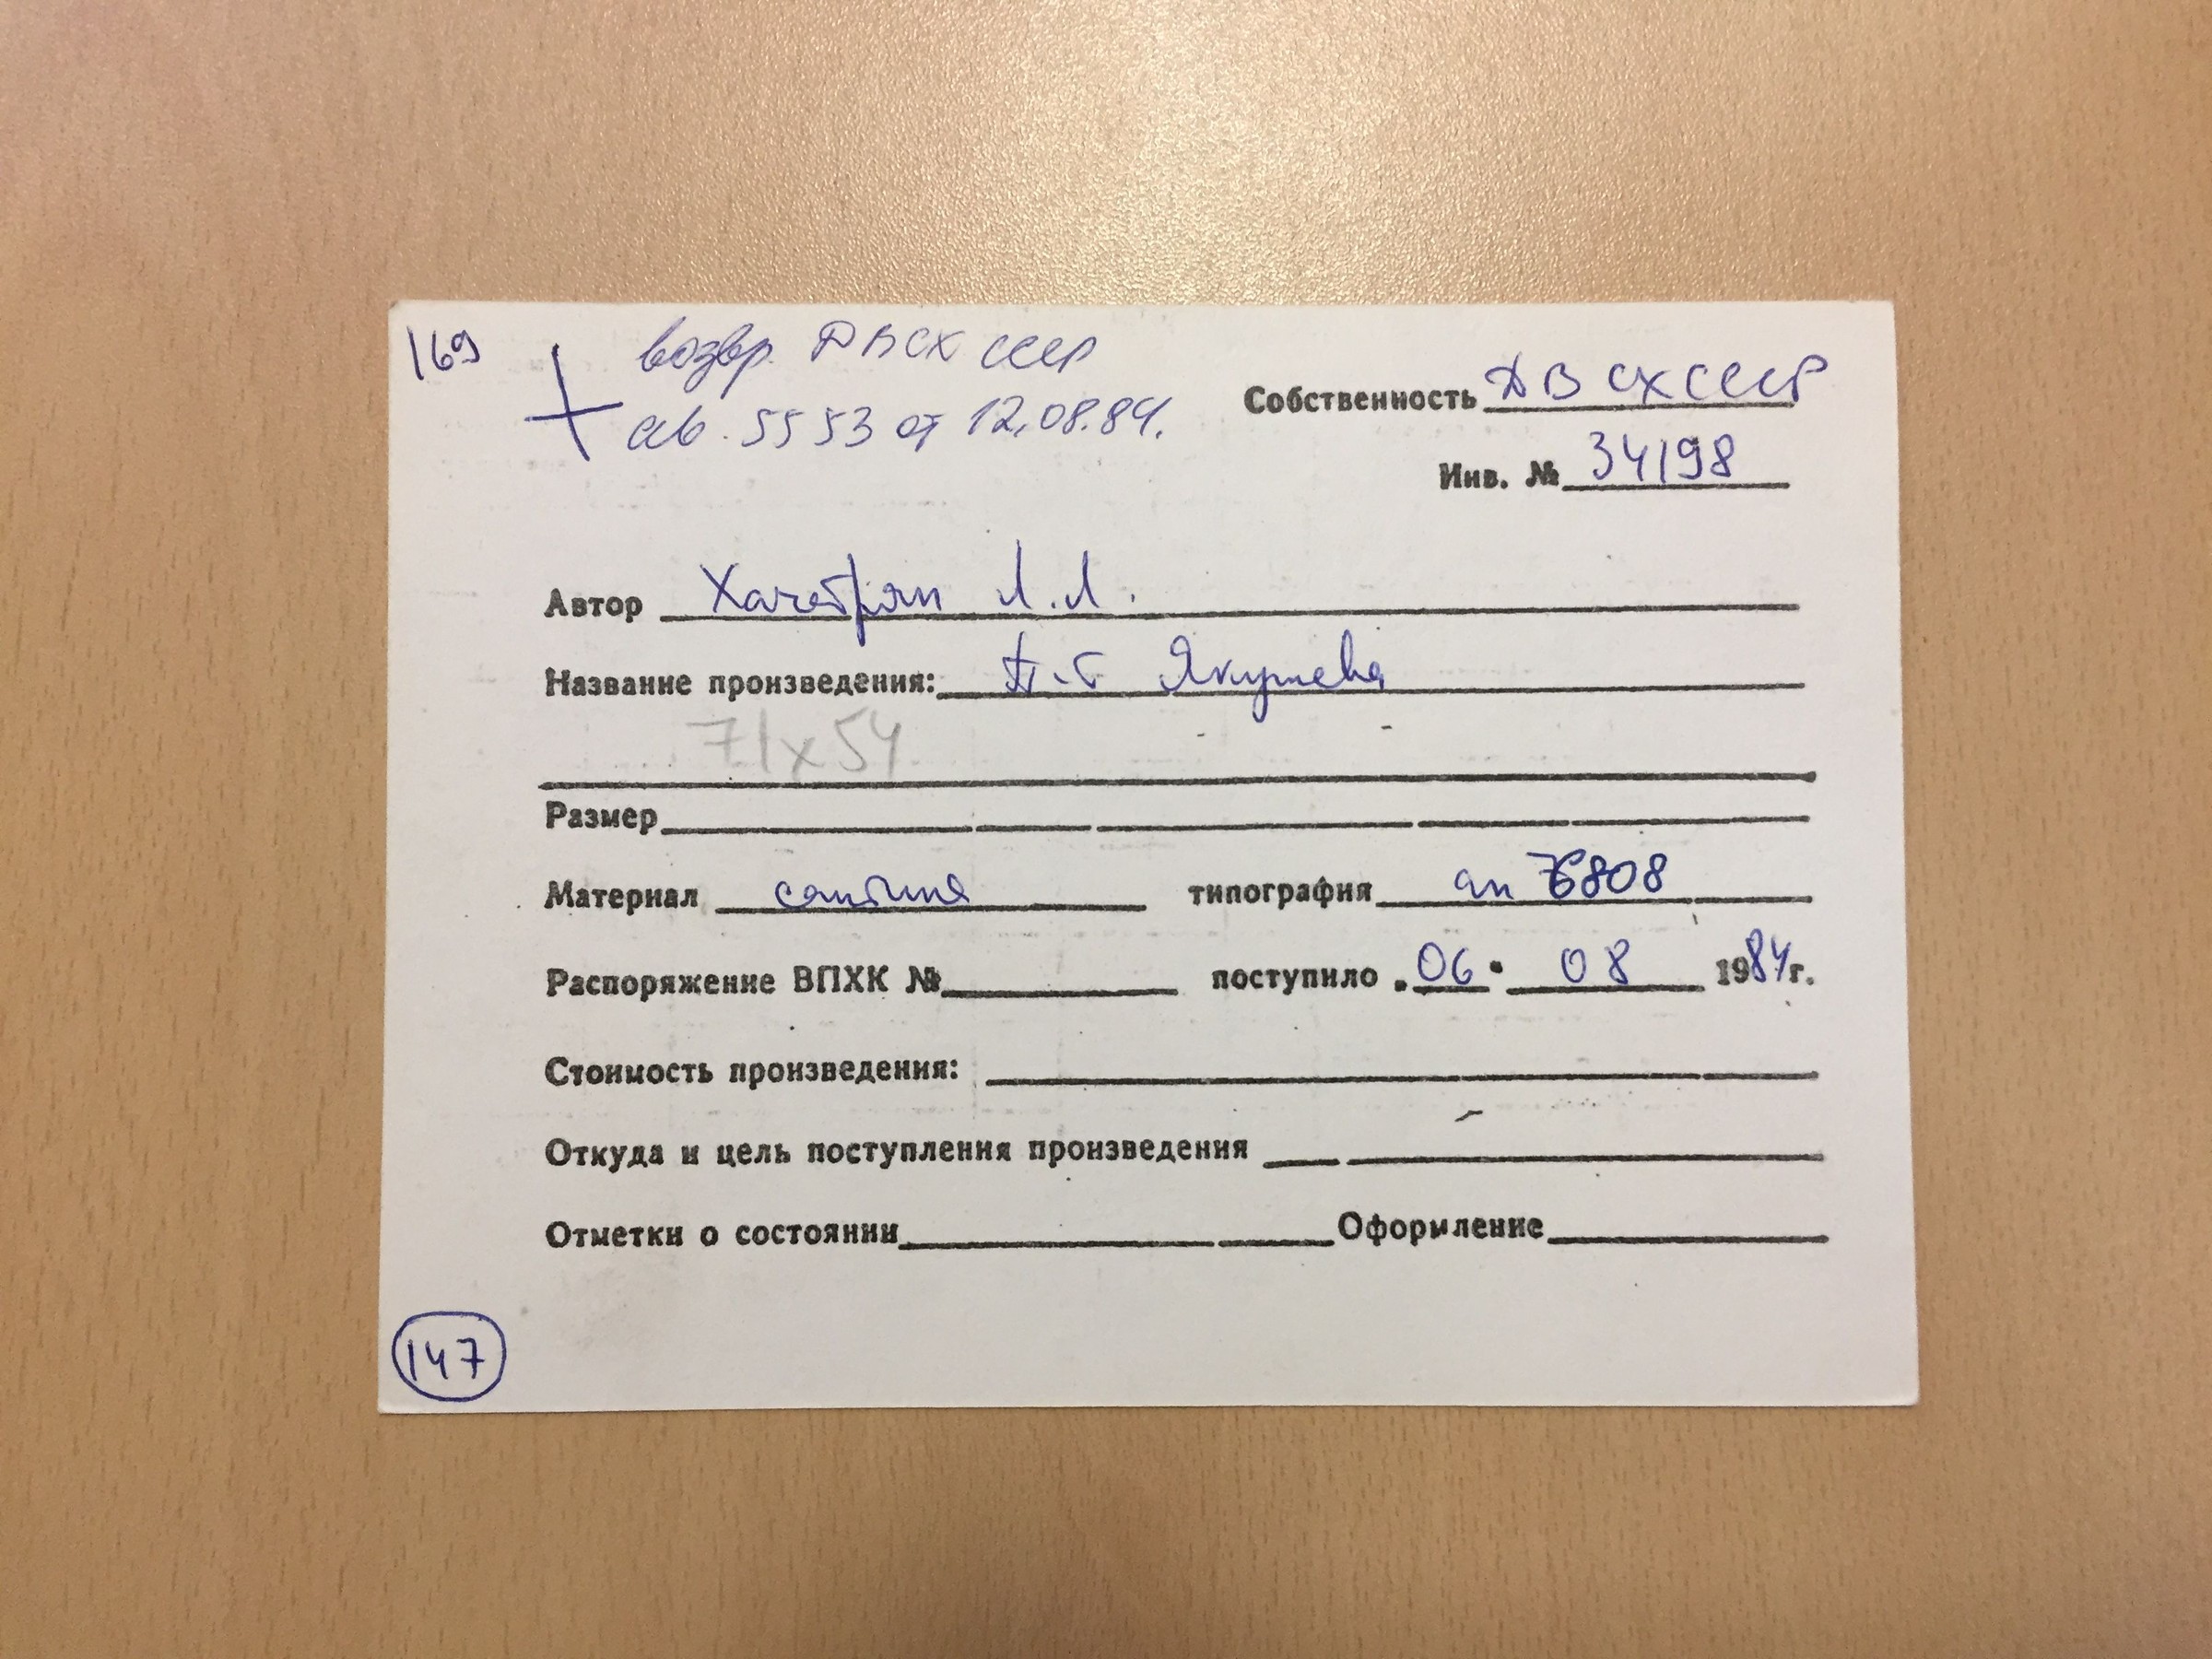 169
возвр. ДВСХ СССР
ав. 5553 от 12.08.84.
Собственность ДВ СХ СССР
Инв. № 34198
Автор Хачатрян Л.Л.
Название произведения: П-т Якушева
71х54
Размер
Материал сангина типография ап 76808
Распоряжение ВПХК № поступило „06" 08 1984г.
Стоимость произведения:
Откуда и цель поступления произведения
Отметки о состоянии Оформление
147